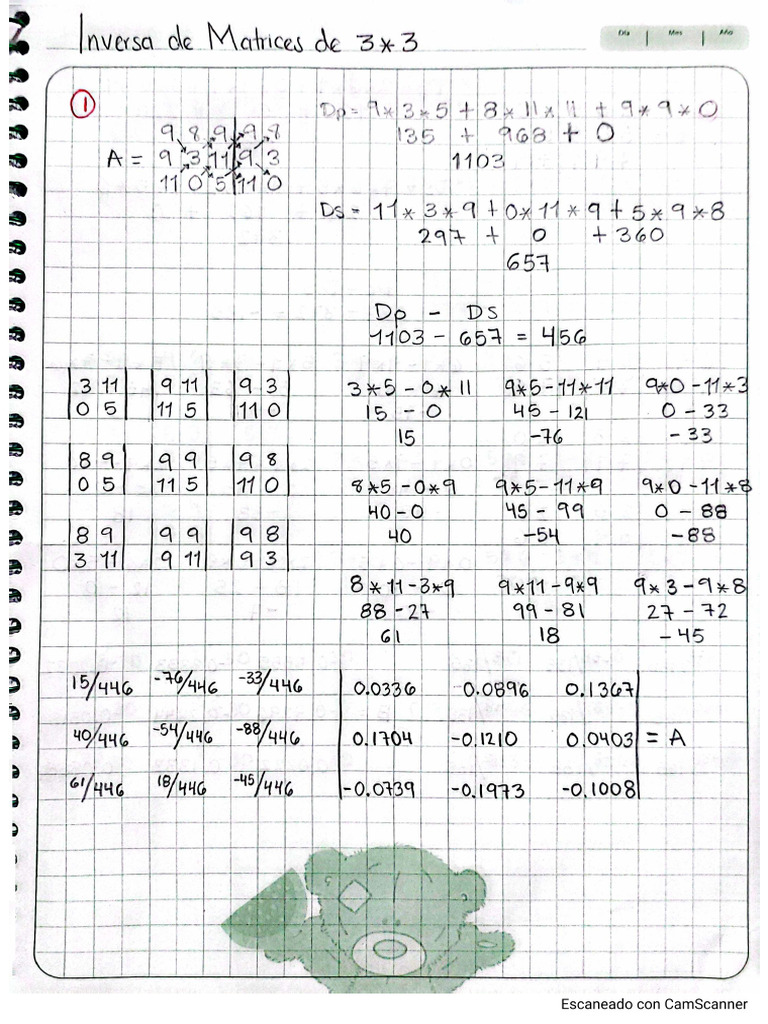 Inversa de Matrices de 3*3
Día | Mes | Año
1
9 8 9 | 9 8
A = 9 3 11 | 9 3
11 0 5 | 11 0
Dp = 9*3*5 + 8*11*11 + 9*9*0
135 + 968 + 0
1103
Ds = 11*3*9 + 0*11*9 + 5*9*8
297 + 0 + 360
657
Dp - Ds
1103 - 657 = 456
|3 11| |9 11| |9 3|
|0 5| |11 5| |11 0|
3*5 - 0*11 9*5 - 11*11 9*0 - 11*3
15 - 0 45 - 121 0 - 33
15 -76 -33
|8 9| |9 9| |9 8|
|0 5| |11 5| |11 0|
8*5 - 0*9 9*5 - 11*9 9*0 - 11*8
40 - 0 45 - 99 0 - 88
40 -54 -88
|8 9| |9 9| |9 8|
|3 11| |9 11| |9 3|
8*11 - 3*9 9*11 - 9*9 9*3 - 9*8
88 - 27 99 - 81 27 - 72
61 18 -45
15/446 -76/446 -33/446
40/446 -54/446 -88/446
61/446 18/446 -45/446
0.0336 -0.0896 0.1367
0.1704 -0.1210 0.0403 = A
-0.0739 -0.1973 -0.1008
Escaneado con CamScanner